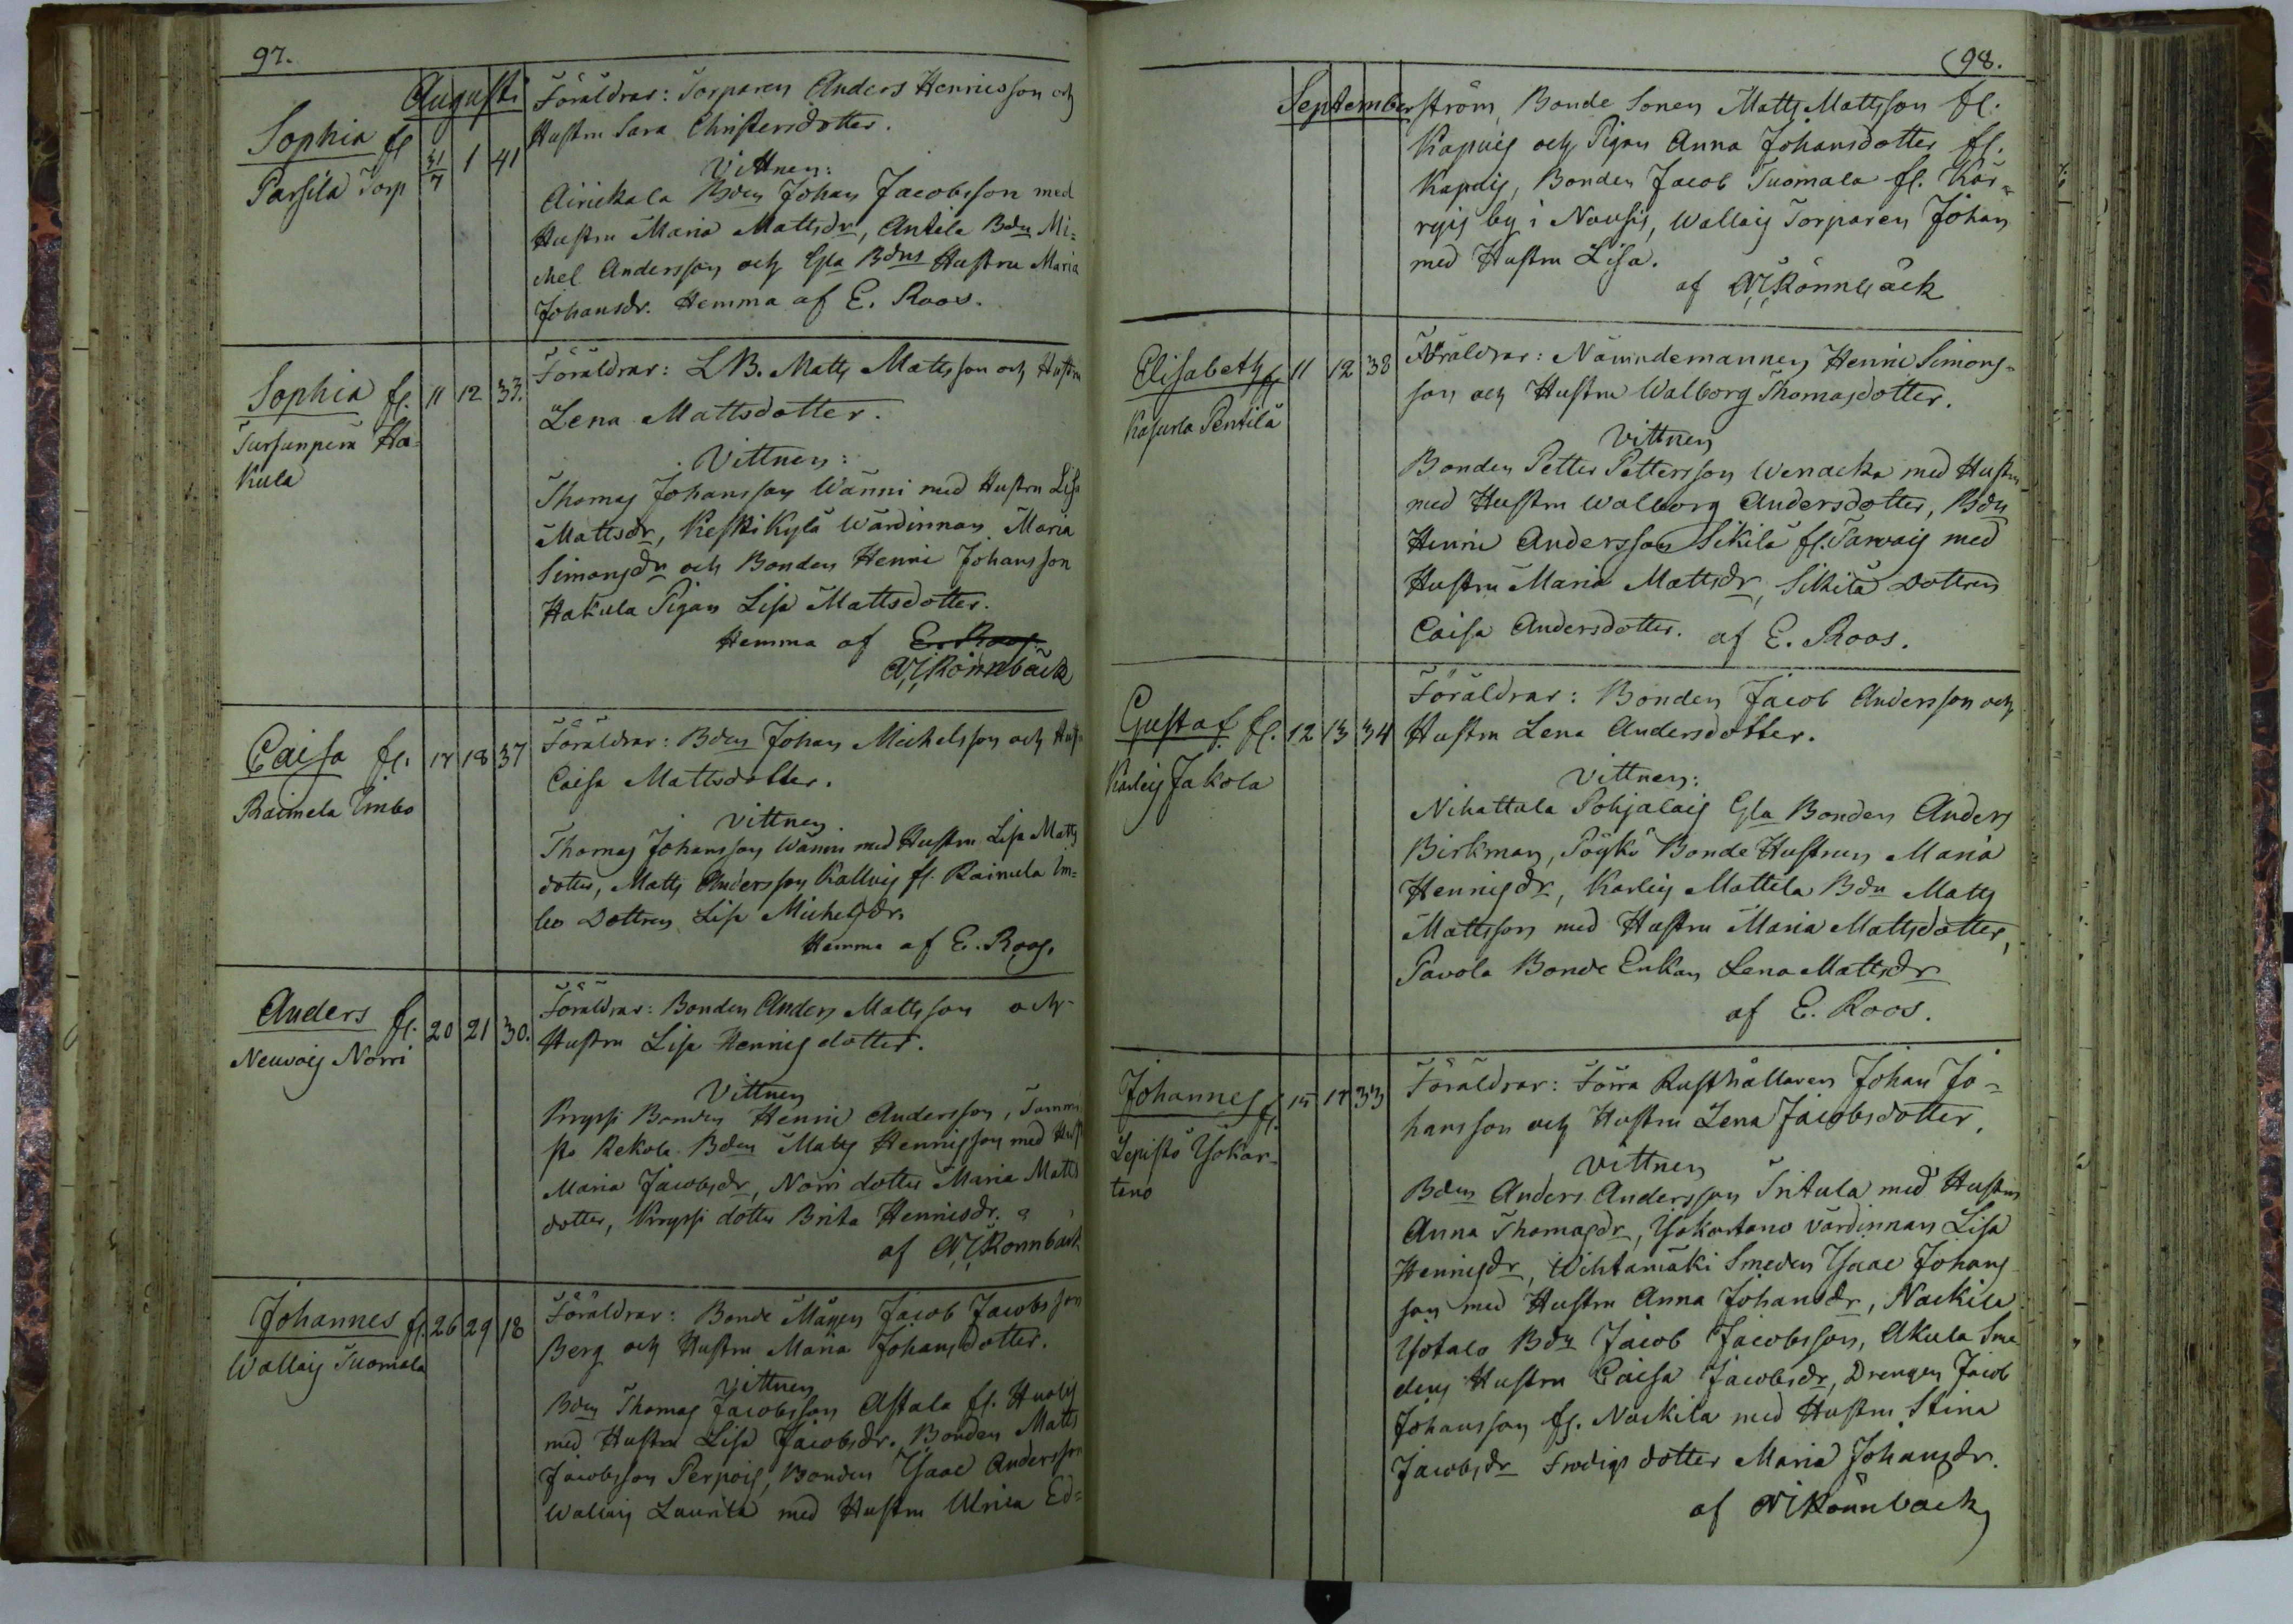 97.
Augusti
Sophia fl
Parsila Torp
31/7 1 41
Föräldrar: Torparen Anders Henricsson och
Hustru Sara Christersdotter.
Vittnen:
Airikala Bden Johan Jacobsson med
Hustru Maria Mattsdr, Antila Bdn Mi=
chel Andersson och Gla Bdns Hustru Maria
Johansdr. Hemma af E. Roos.
Sophia fl.
Tursunperä Ha=
kula
11 12 33.
Föräldrar: LB. Matts Mattsson och Hustru
Lena Mattsdotter.
Vittnen:
Thomas Johansson Wänni med Hustru Lisa
Mattsdr, Keskikylä Wärdinnan Maria
Simonsdr och Bonden Henric Johansson
Hakula Pigan Lisa Mattsdotter.
Hemma af E. Roos
Rönnbäck
Caisa fl.
Raimela Imbo
17 18 37
Föräldrar: Bden Johan Michelsson och Hust
Caisa Mattsdotter.
Vittnen
Thomas Johansson Wänni med Hustru Lisa Matts
dotter, Matts Andersson Kallais fl. Raimela Im=
bo Dottren Lisa Michelsdr.
Hemma af E. Roos.
Anders fl.
Neuvois Norri
20 21 30.
Föräldrar: Bonden Anders Mattsson och
Hustru Lisa Henricsdotter.
Vittnen
Kryssi Bonden Henric Andersson, Tammi
sto Rekola Bden Matts Henricsson med Hust
Maria Jacobsdr, Norri dotter Maria Matts
dotter, Kryssi dotter Brita Henricsdr.
af Rönnbäck
Johannes fl.
Wallais Tuomola
26 29 18
Föräldrar: Bonde Mågen Jacob Jacobsson
Berg och Hustru Maria Johansdotter.
Vittnen
Bden Thomas Jacobsson Astala fl. Huolis
med Hustru Lisa Jacobsdr. Bonden Matts
Jacobsson Perpois, Bonden Isaac Andersson
Wallais Laurila med Hustru Ulrica Ed=
(98.
September
ström, Bonde Sonen Matts Mattsson fl.
Kapuis och Pigan Anna Johansdotter fl.
Kapuis, Bonden Jacob Tuomala fl. Kär=
ryis by i Nousis, Wallais Torparen Johan
med Hustru Lisa.
af Rönnbäck
Elisabeth fl
Kasurla Pentilä
11 12 38
Föräldrar: Nämndemannen Henric Simons=
son och Hustru Walborg Thomasdotter.
Vittnen
Bonden Petter Pettersson Wenacka med Hustru
med Hustru Walborg Andersdotter, Bdn
Henric Andersson Sikilä fl. Tarvais med
Hustru Maria Mattsdr, Sikilä Dottren
Caisa Andersdotter. af E. Roos.
Gustaf fl.
Karleis Jakola
12 13 34
Föräldrar: Bonden Jacob Andersson och
Hustru Lena Andersdotter.
Vittnen:
Nihattula Pohjalais Gla Bonden Anders
Birkman, Pöykö Bonde Hustrun Maria
Henricsdr, Karleis Mattila Bdn Matts
Mattsson med Hustru Maria Mattsdotter,
Pavola Bonde Enkan Lena Mattsdr
af E. Roos.
Johannes fl.
Lepistö Ysokar=
tano
15 17 33
Föräldrar: Förra Rusthållaren Johan Jo=
hansson och Hustru Lena Jacobsdotter.
Vittnen
Bden Anders Andersson Tritula med Hustru
Anna Thomasdr, Ysokartano Värdinnan Lisa
Henricsdr, Wihtamäki Smeden Isaac Johans
son med Hustru Anna Johansdr, Nackila
Ysotalo Bdn Jacob Jacobsson, Akula Sme
dens Hustru Caisa Jacobsdr, Drengen Jacob
Johansson fl. Nackila med Hustru Stina
Jacobsdr dotter Maria Johansdr.
af Rönnbäck